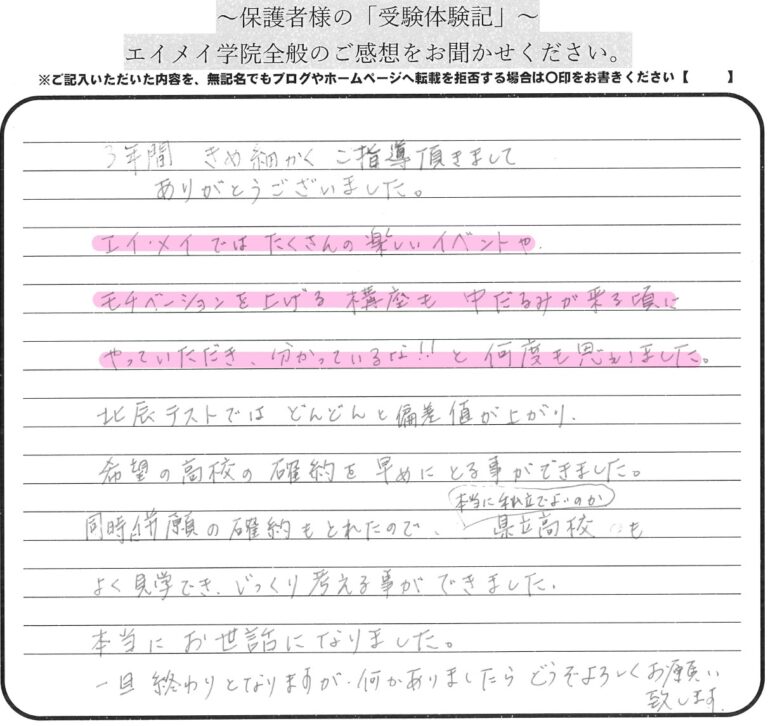 ～保護者様の「受験体験記」～
エイメイ学院全般のご感想をお聞かせください。
※ご記入いただいた内容を、無記名でもブログやホームページへ転載を拒否する場合は〇印をお書きください【　　】
3年間 きめ細かく ご指導頂きまして
ありがとうございました。
エイ・メイではたくさんの楽しいイベントや
モチベーションを上げる講座も 中だるみが来る頃に
やっていただき、分かっているな!!と何度も思いました。
北辰テストでは どんどんと偏差値が上がり、
希望の高校の確約を早めにとる事ができました。
本当に私立でよいのか
同時併願の確約もとれたので、県立高校も
よく見学でき、じっくり考える事ができました。
本当にお世話になりました。
一旦終わりとなりますが、何かありましたらどうぞよろしくお願い
致します。